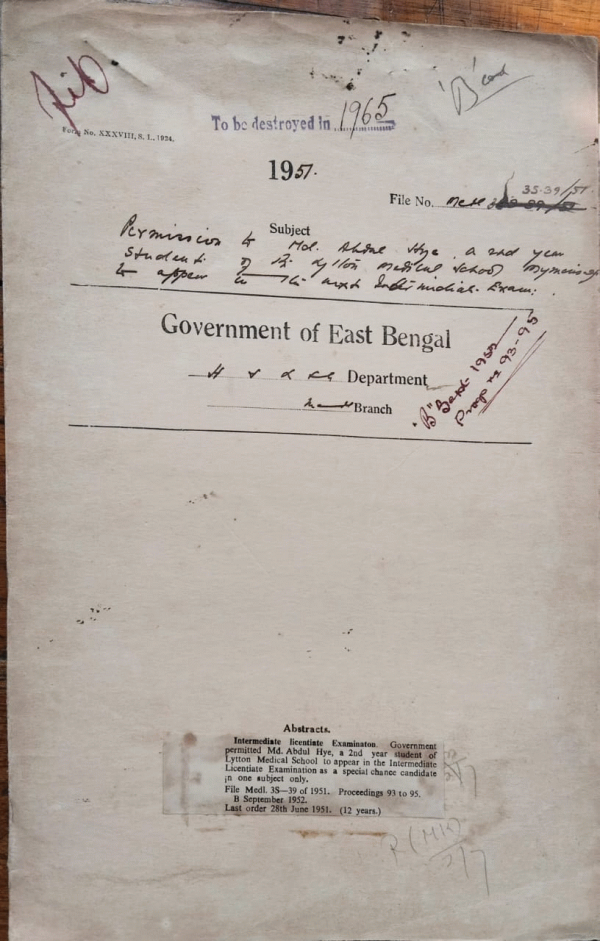 'B'
Form No. XXXVIII, S. I., 1924.
To be destroyed in 1965
1951.
3S-39/51
File No. Medl
Subject
Permission to Md. Abdul Hye a 2nd year
student of the Lytton Medical School Mymensingh
to appear in the next Intermediate Exam:
Government of East Bengal
H S & LG Department
Branch
"B"
Progs 93-95
Abstracts.
Intermediate licentiate Examinaton. Government
permitted Md. Abdul Hye, a 2nd year student of
Lytton Medical School to appear in the Intermediate
Licentiate Examination as a special chance candidate
in one subject only.
File Medl. 3S—39 of 1951. Proceedings 93 to 95.
B September 1952.
Last order 28th June 1951. (12 years.)